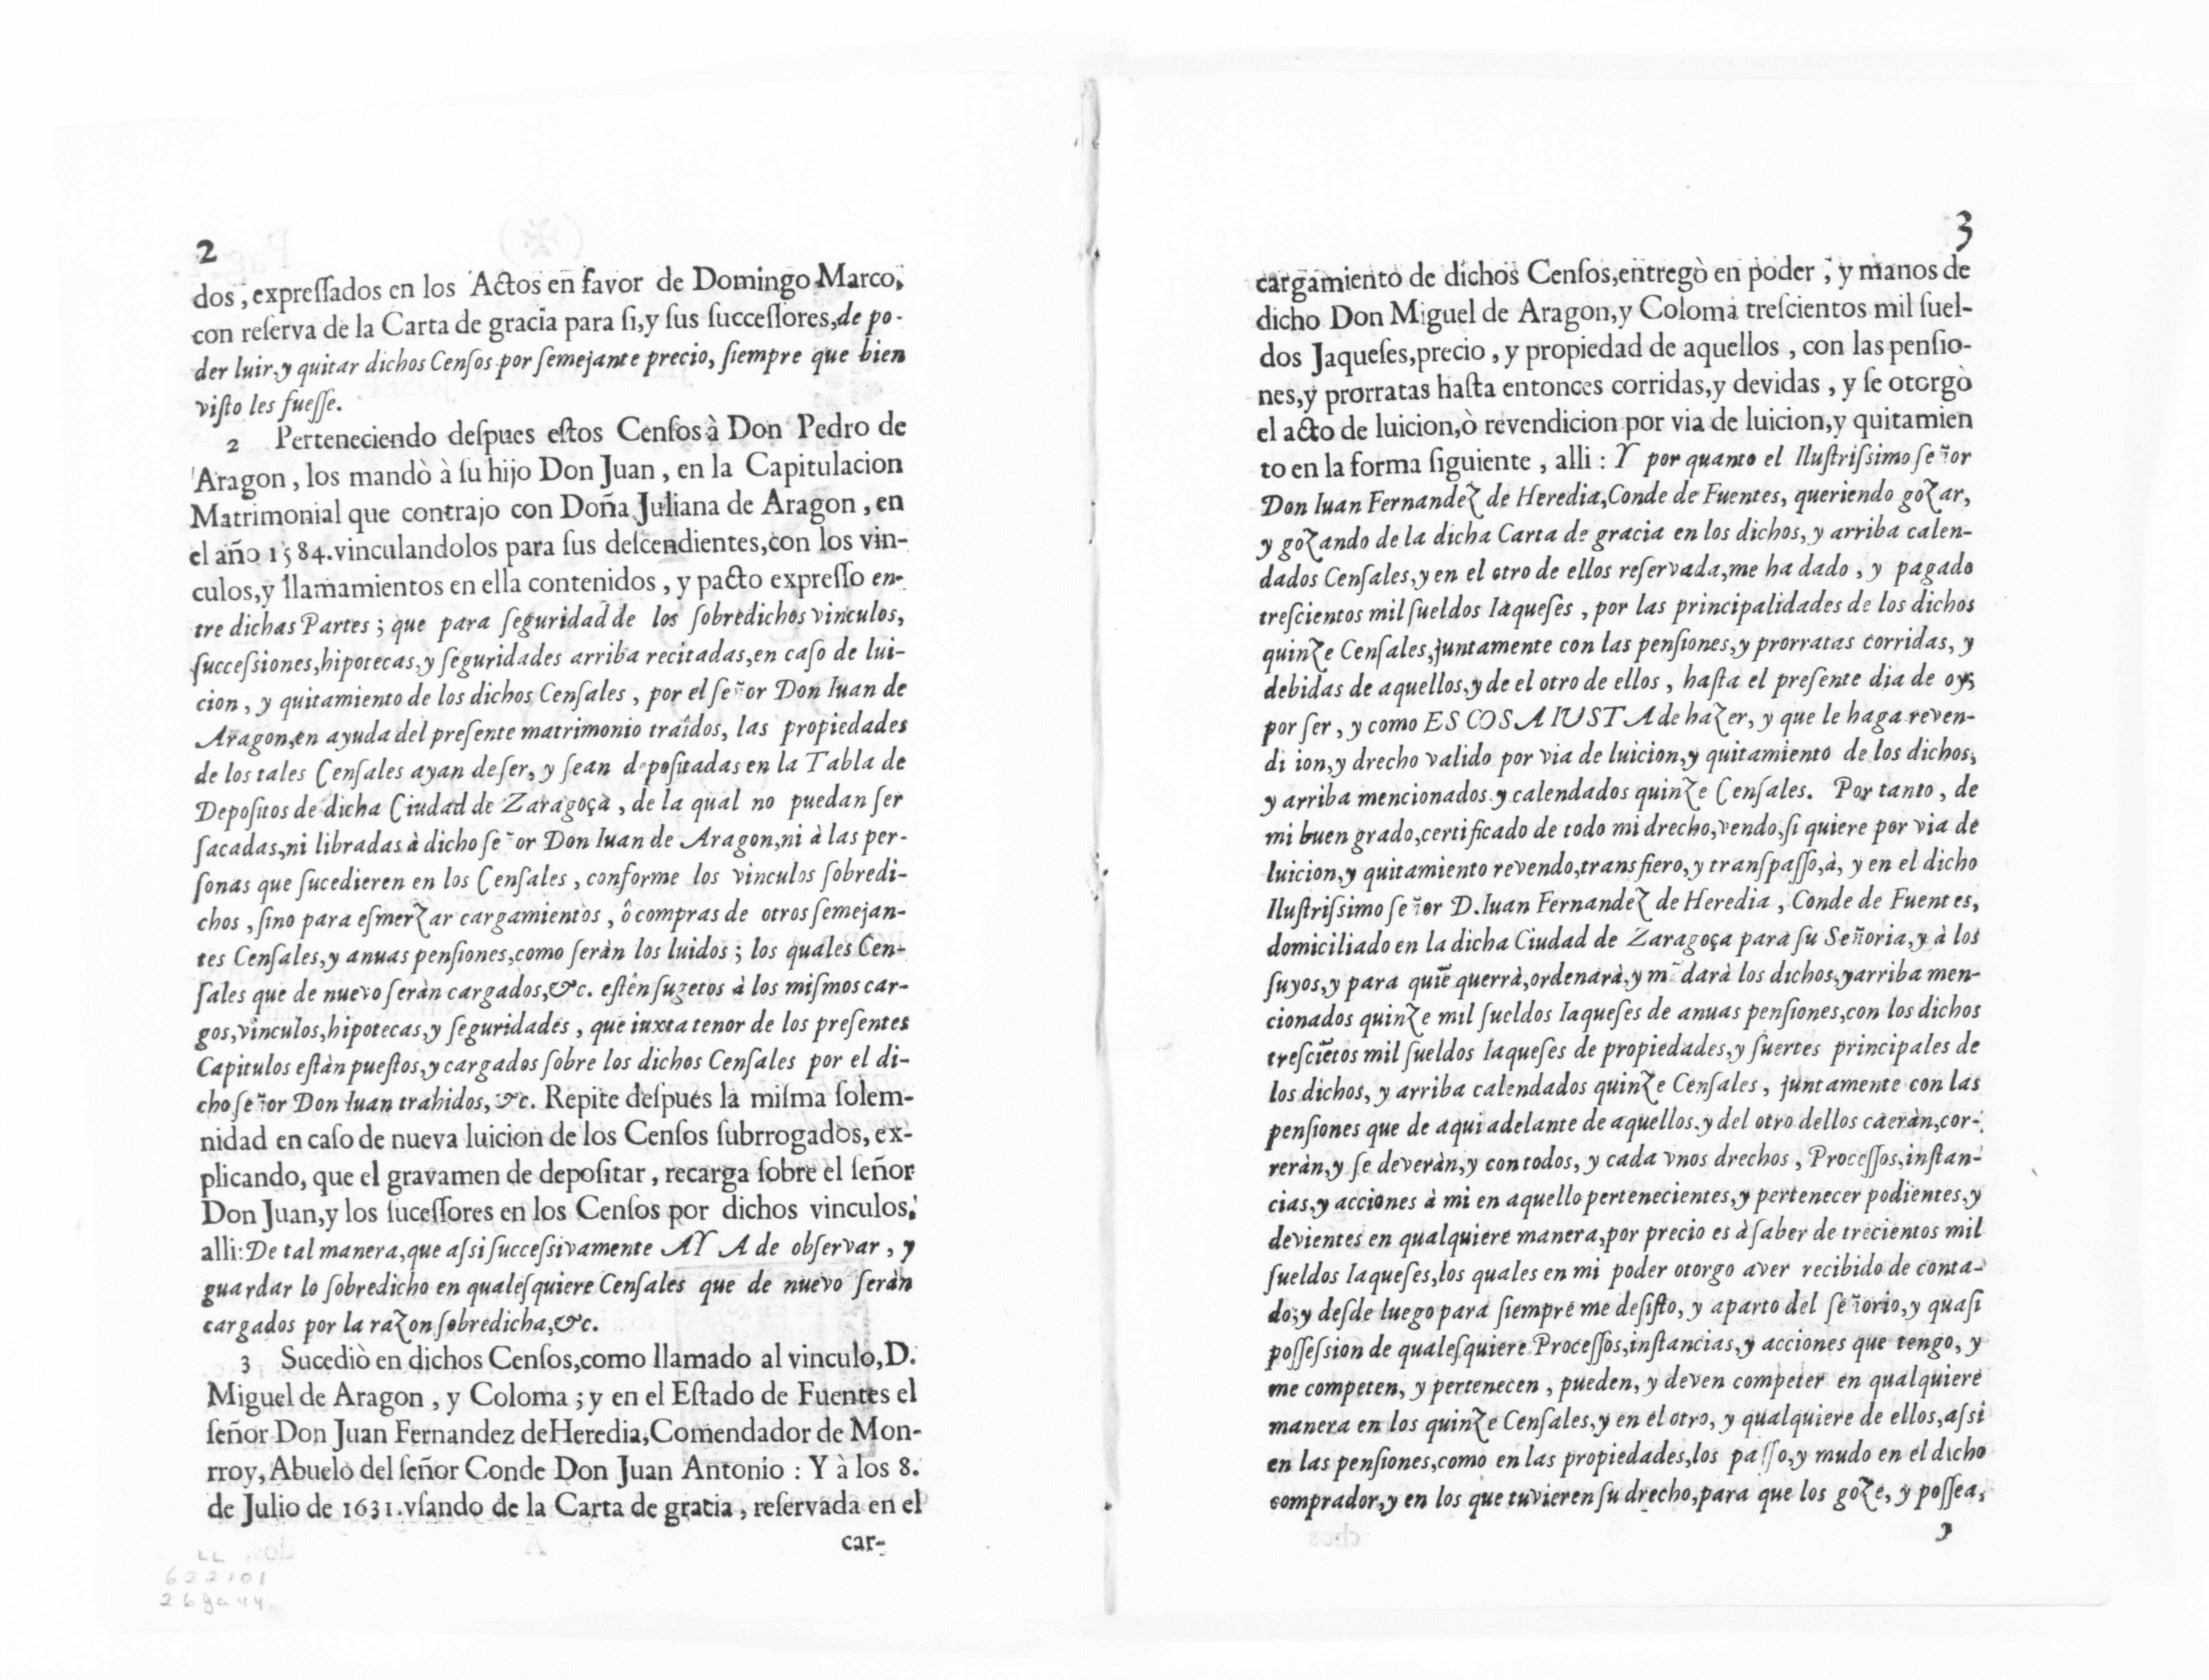 2
dos, expreſſados en los Actos en favor de Domingo Marco,
con reſerva de la Carta de gracia para ſi,y ſus ſucceſſores,de po-
der luir,y quitar dichos Cenſos por ſemejante precio, ſiempre que bien
viſto les fueſſe.
2 Perteneciendo deſpues eſtos Cenſos à Don Pedro de
Aragon, los mandò à ſu hijo Don Juan, en la Capitulacion
Matrimonial que contrajo con Doña Juliana de Aragon, en
el año 1584.vinculandolos para ſus deſcendientes,con los vin-
culos,y llamamientos en ella contenidos, y pacto expreſſo en-
tre dichas Partes; que para ſeguridad de los ſobredichos vinculos,
ſucceſsiones,hipotecas,y ſeguridades arriba recitadas,en caſo de lui-
cion, y quitamiento de los dichos Cenſales, por el ſeñor Don Iuan de
Aragon,en ayuda del preſente matrimonio traîdos, las propiedades
de los tales Cenſales ayan de ſer, y ſean depoſitadas en la Tabla de
Depoſitos de dicha Ciudad de Zaragoça, de la qual no puedan ſer
ſacadas,ni libradas à dicho ſeñor Don Iuan de Aragon,ni à las per-
ſonas que ſucedieren en los Cenſales, conforme los vinculos ſobredi-
chos, ſino para eſmerzar cargamientos, ô compras de otros ſemejan-
tes Cenſales,y anuas penſiones,como ſeràn los luidos; los quales Cen-
ſales que de nuevo ſeràn cargados,&c. eſtên ſugetos à los miſmos car-
gos,vinculos,hipotecas,y ſeguridades, que iuxta tenor de los preſentes
Capitulos eſtàn pueſtos,y cargados ſobre los dichos Cenſales por el di-
cho ſeñor Don Iuan trahidos,&c. Repite deſpues la miſma ſolem-
nidad en caſo de nueva luicion de los Cenſos ſubrrogados, ex-
plicando, que el gravamen de depoſitar, recarga ſobre el ſeñor
Don Juan,y los ſuceſſores en los Cenſos por dichos vinculos,
alli:De tal manera,que aſsi ſucceſsivamente AYA de obſervar, y
guardar lo ſobredicho en qualeſquiere Cenſales que de nuevo ſeràn
cargados por la razon ſobredicha,&c.
3 Sucediò en dichos Cenſos,como llamado al vinculo,D.
Miguel de Aragon, y Coloma; y en el Eſtado de Fuentes el
ſeñor Don Juan Fernandez de Heredia,Comendador de Mon-
rroy, Abuelo del ſeñor Conde Don Juan Antonio: Y à los 8.
de Julio de 1631.vſando de la Carta de gracia, reſervada en el
car-
622101
3
cargamiento de dichos Cenſos,entregò en poder, y manos de
dicho Don Miguel de Aragon,y Coloma treſcientos mil ſuel-
dos Jaqueſes,precio, y propiedad de aquellos, con las penſio-
nes,y prorratas haſta entonces corridas,y devidas, y ſe otorgò
el acto de luicion,ò revendicion por via de luicion,y quitamien
to en la forma ſiguiente, alli: Y por quanto el Iluſtriſsimo ſeñor
Don Iuan Fernandez de Heredia,Conde de Fuentes, queriendo gozar,
y gozando de la dicha Carta de gracia en los dichos, y arriba calen-
dados Cenſales,y en el otro de ellos reſervada,me ha dado, y pagado
treſcientos mil ſueldos Iaqueſes, por las principalidades de los dichos
quinze Cenſales,juntamente con las penſiones,y prorratas corridas, y
debidas de aquellos,y de el otro de ellos, haſta el preſente dia de oy;
por ſer, y como ES COSA IUSTA de hazer, y que le haga reven-
di ion,y drecho valido por via de luicion,y quitamiento de los dichos,
y arriba mencionados y calendados quinze Cenſales. Por tanto, de
mi buen grado,certificado de todo mi drecho,vendo,ſi quiere por via de
luicion,y quitamiento revendo,transfiero,y tranſpaſſo,à, y en el dicho
Iluſtriſsimo ſeñor D.Iuan Fernandez de Heredia, Conde de Fuentes,
domiciliado en la dicha Ciudad de Zaragoça para ſu Señoria,y à los
ſuyos,y para quiē querrà,ordenarà,y m~darà los dichos,y arriba men-
cionados quinze mil ſueldos Iaqueſes de anuas penſiones,con los dichos
treſciētos mil ſueldos Iaqueſes de propiedades,y ſuertes principales de
los dichos, y arriba calendados quinze Cenſales, juntamente con las
penſiones que de aqui adelante de aquellos,y del otro dellos caeràn,cor-
reràn,y ſe deveràn,y con todos, y cada vnos drechos, Proceſſos,inſtan-
cias,y acciones à mi en aquello pertenecientes,y pertenecer podientes,y
devientes en qualquiere manera,por precio es à ſaber de trecientos mil
ſueldos Iaqueſes,los quales en mi poder otorgo aver recibido de conta-
do;y deſde luego para ſiempre me deſiſto, y aparto del ſeñorio,y quaſi
poſſeſsion de qualeſquiere Proceſſos,inſtancias,y acciones que tengo, y
me competen, y pertenecen, pueden, y deven competer en qualquiere
manera en los quinze Cenſales,y en el otro, y qualquiere de ellos,aſsi
en las penſiones,como en las propiedades,los paſſo,y mudo en el dicho
comprador,y en los que tuvieren ſu drecho,para que los goze, y poſſea,
y